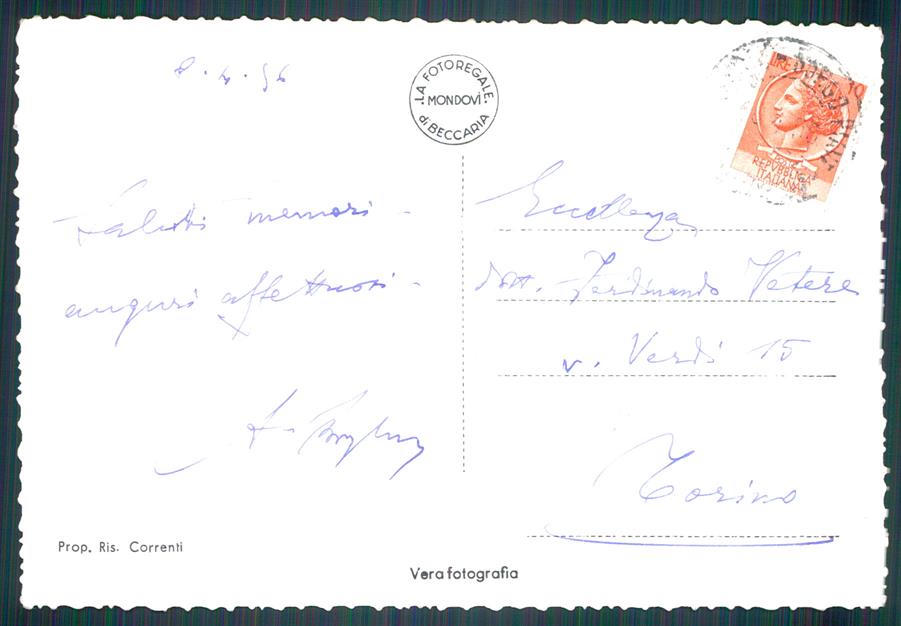 8.4.56
LA FOTOREGALE
MONDOVÌ
di BECCARIA
LIRE 10
REPVBBLICA
ITALIANA
Saluti memori -
auguri affettuosi -
Eccellenza
dott. Ferdinando Vetere
v. Verdi 15
Torino
Prop. Ris. Correnti
Vera fotografia